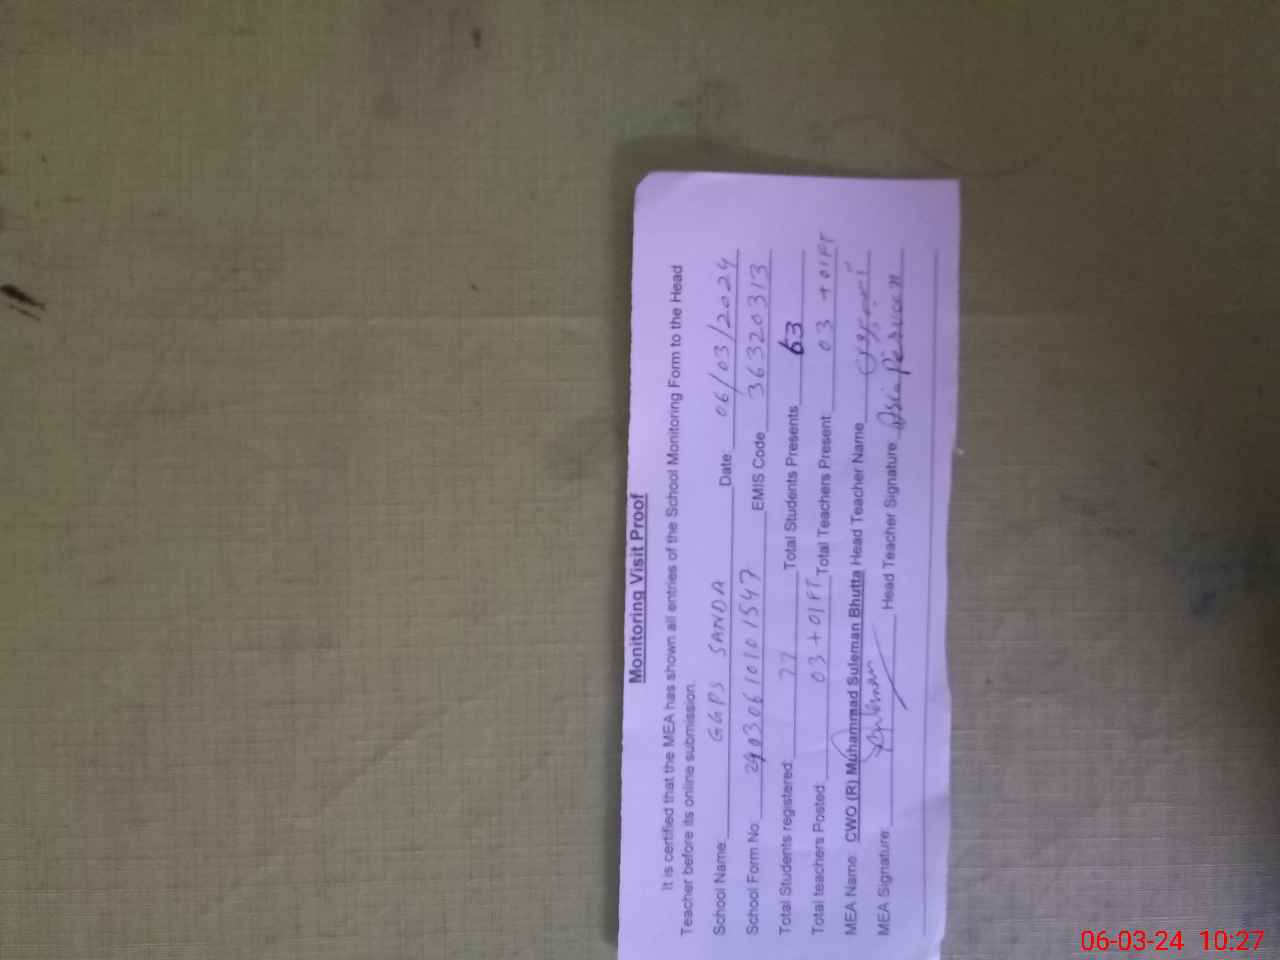 Monitoring Visit Proof
It is certified that the MEA has shown all entries of the School Monitoring Form to the Head
Teacher before its online submission.
School Name: GGPS SANDA Date: 06/03/2024
School Form No: 24030610101547 EMIS Code 36320313
Total Students registered: 77 Total Students Presents 63
Total teachers Posted: 03 + 01 PT Total Teachers Present: 03 + 01 PT
MEA Name: CWO (R) Muhammad Suleman Bhutta Head Teacher Name
MEA Signature Suleman Head Teacher Signature Asia Perveen
06-03-24 10:27